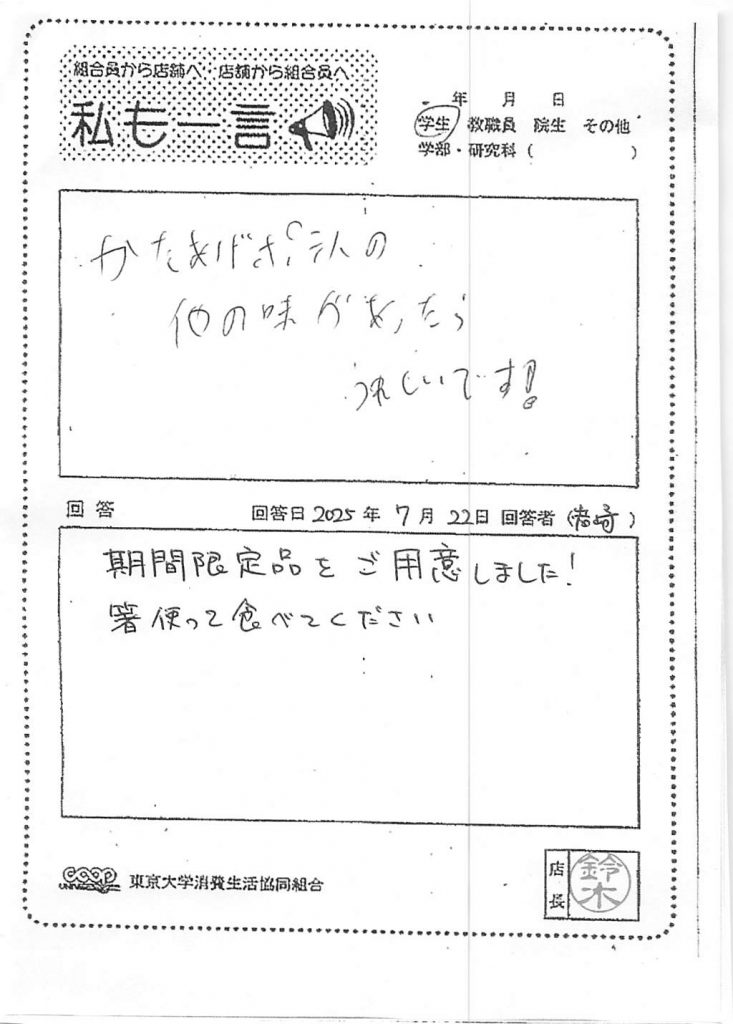 組合員から店舗へ 店舗から組合員へ
私も一言
年 月 日
学生 教職員 院生 その他
学部・研究科( )
かたあげポテトの
他の味があったら
うれしいです!
回答 回答日 2025年 7月 22日 回答者(岩崎)
期間限定品をご用意しました!
箸使って食べてください
coop
UNIVERSITY
東京大学消費生活協同組合
店長
鈴木